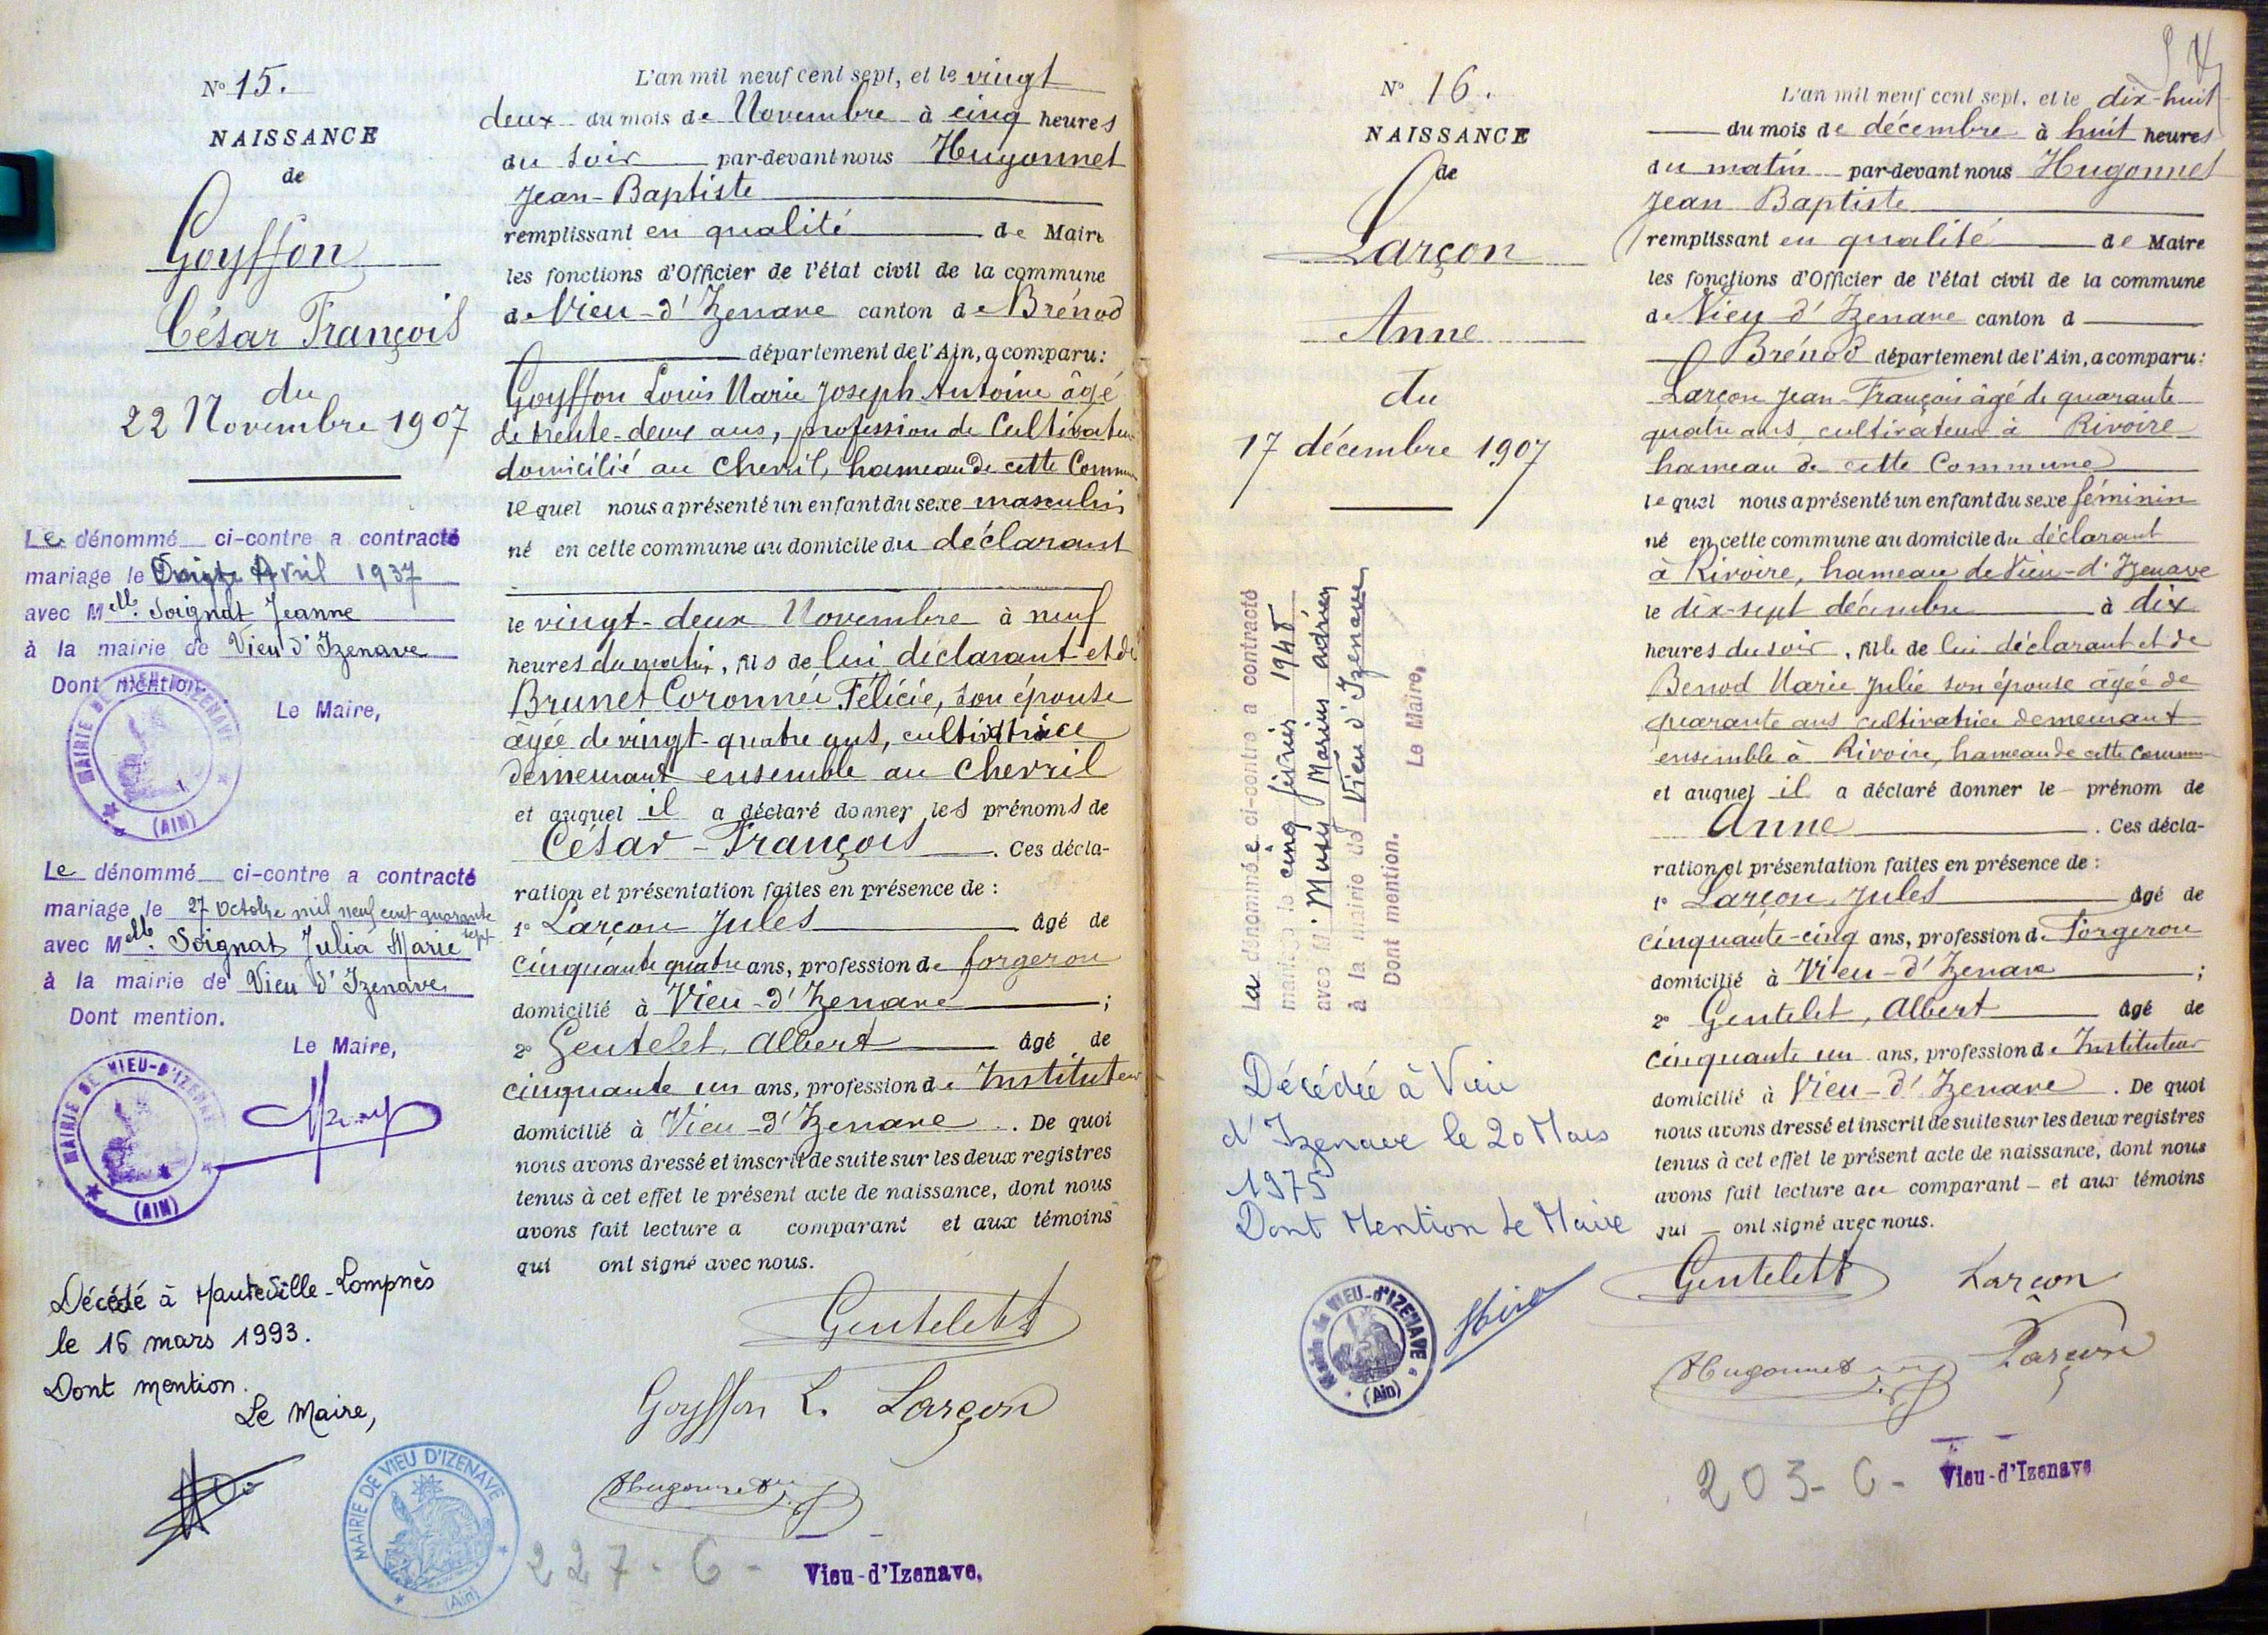 N° 15.
NAISSANCE
de
Goyffon
César François
du
22 Novembre 1907
Le dénommé ci-contre a contracté
mariage le Avril 1937
avec Melle Soignat Jeanne
à la mairie de Vieu d'Izenave
Dont mention.
Le Maire,
MAIRIE DE VIEU-D'IZENAVE
(AIN)
Le dénommé ci-contre a contracté
mariage le 27 Octobre mil neuf cent quarante
sept
avec Melle Soignat Julia Marie
à la mairie de Vieu d'Izenave
Dont mention.
Le Maire,
MAIRIE DE VIEU-D'IZENAVE
(AIN)
Décédé à Hauteville-Lompnès
le 16 mars 1993.
Dont mention.
Le Maire,
MAIRIE DE VIEU D'IZENAVE
(Ain)
L'an mil neuf cent sept, et le vingt
deux du mois de Novembre à cinq heures
du soir par-devant nous Hugonnet
Jean-Baptiste
remplissant en qualité de Maire
les fonctions d'Officier de l'état civil de la commune
de Vieu-d'Izenave canton de Brénod
département de l'Ain, a comparu:
Goyffon Louis Marie Joseph Antoine âgé
de trente-deux ans, profession de Cultivateur
domicilié au Chevril, hameau de cette Commune
lequel nous a présenté un enfant du sexe masculin
né en cette commune au domicile du déclarant
le vingt-deux Novembre à neuf
heures du matin, fils de lui déclarant et de
Brunet Coronnée Félicie, son épouse
âgée de vingt-quatre ans, cultivatrice
demeurant ensemble au Chevril
et auquel il a déclaré donner les prénoms de
César-François. Ces décla-
ration et présentation faites en présence de :
1° Larçon Jules âgé de
cinquante quatre ans, profession de forgeron
domicilié à Vieu-d'Izenave ;
2° Gentelet, Albert âgé de
cinquante un ans, profession de Instituteur
domicilié à Vieu-d'Izenave. De quoi
nous avons dressé et inscrit de suite sur les deux registres
tenus à cet effet le présent acte de naissance, dont nous
avons fait lecture a comparant et aux témoins
qui ont signé avec nous.
Gentelet
Goyffon L. Larçon
Hugonnet
227-6-
Vieu-d'Izenave.
N° 16.
NAISSANCE
de
Larçon
Anne
du
17 décembre 1907
La dénommée ci-contre a contracté
mariage le cinq février 1948
avec M. Musy Marius
à la mairie de Vieu d'Izenave
Dont mention.
Le Maire,
Décédée à Vieu
d'Izenave le 20 Mars
1975
Dont Mention Le Maire
Mairie de VIEU-d'IZENAVE
(Ain)
L'an mil neuf cent sept, et le dix-huit
du mois de décembre à huit heures
du matin par-devant nous Hugonnet
Jean Baptiste
remplissant en qualité de Maire
les fonctions d'Officier de l'état civil de la commune
de Vieu d'Izenave canton d
Brénod département de l'Ain, a comparu:
Larçon Jean-François âgé de quarante
quatre ans, cultivateur à Rivoire
hameau de cette Commune
lequel nous a présenté un enfant du sexe féminin
né en cette commune au domicile du déclarant
à Rivoire, hameau de Vieu-d'Izenave
le dix-sept décembre à dix
heures du soir, fille de lui déclarant et de
Benod Marie Julie son épouse âgée de
quarante ans cultivatrice demeurant
ensemble à Rivoire, hameau de cette commune
et auquel il a déclaré donner le prénom de
Anne. Ces décla-
ration et présentation faites en présence de :
1° Larçon Jules âgé de
cinquante-cinq ans, profession de Forgeron
domicilié à Vieu-d'Izenave ;
2° Gentelet, Albert âgé de
cinquante un ans, profession de Instituteur
domicilié à Vieu-d'Izenave. De quoi
nous avons dressé et inscrit de suite sur les deux registres
tenus à cet effet le présent acte de naissance, dont nous
avons fait lecture au comparant et aux témoins
qui ont signé avec nous.
Gentelet Larçon
Hugonnet Larçon
203-6-
Vieu-d'Izenave